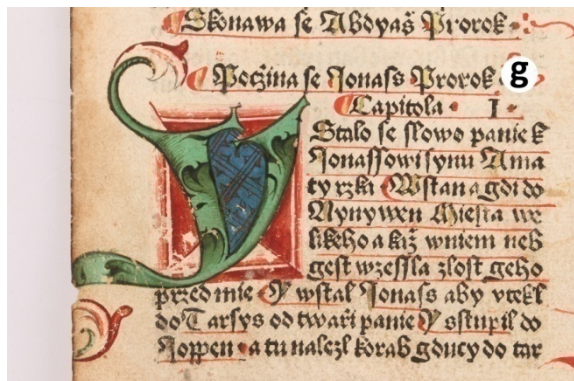 Skonawa se Abdyaš Prorok
Počzina se Jonass Prorok
g
Capitola I
Stalo se slowo panie k
Jonassowi synu Ama
ty rzka Wstan a gdi do
Nynywen Miesta we
likeho a kiž w niem neb
gest wzessla zlost geho
przed mie Y wstal Jonass aby vtekl
do Tarsys od twaři panie Y sstupil do
Joppen a tu nalezl korab gducy do tar